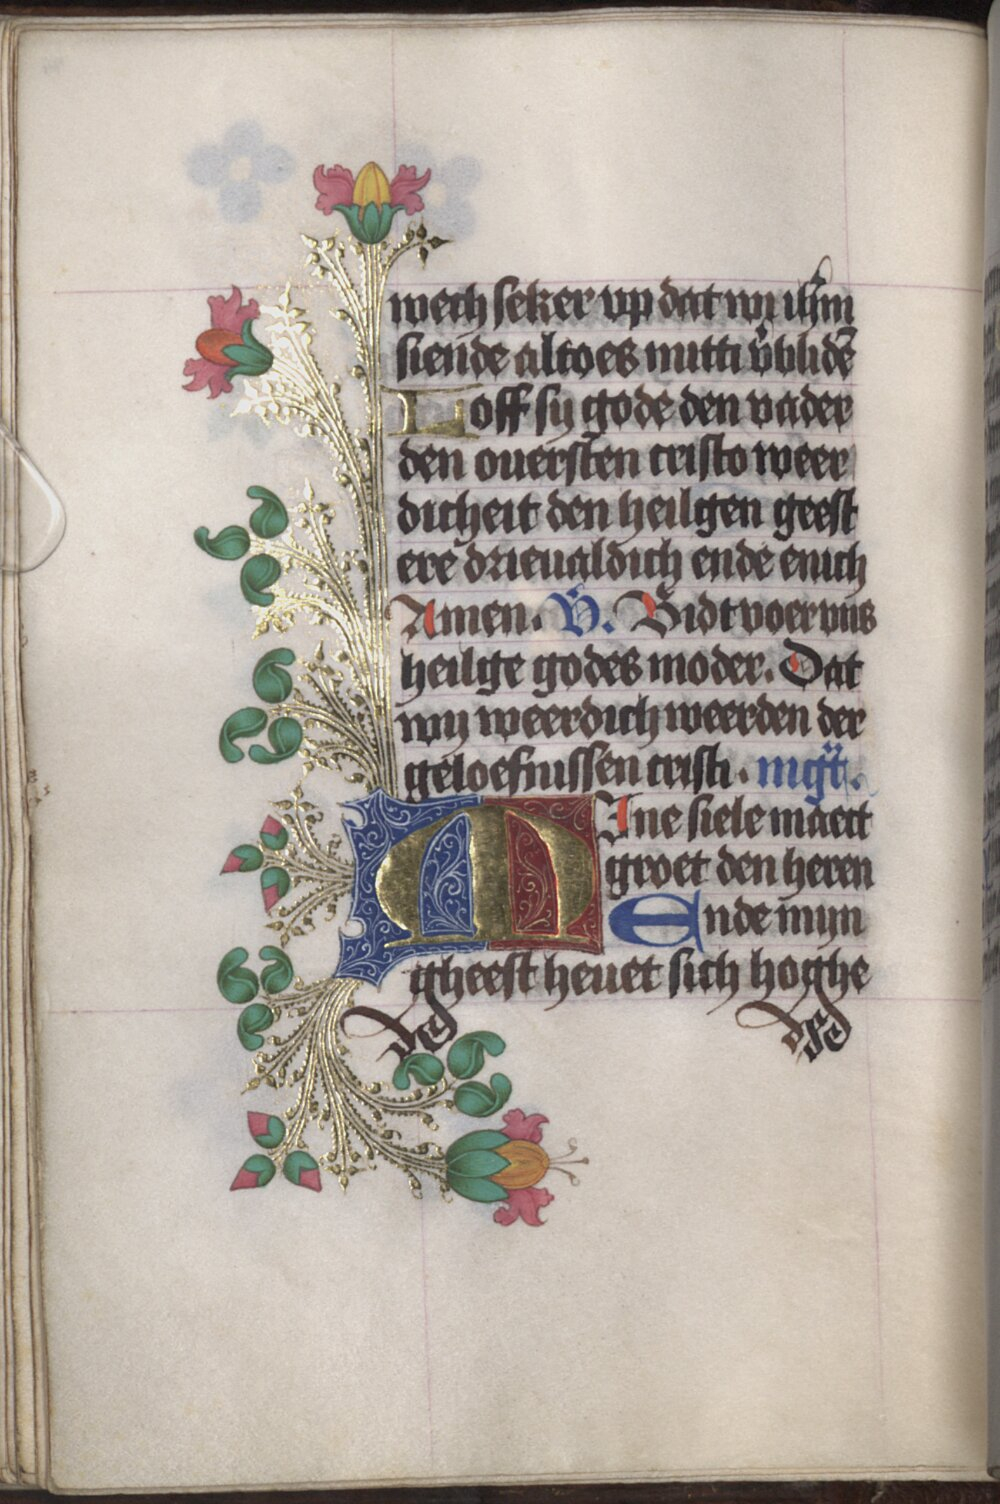 wech seker up dat wi ih̄m
siende altoes mitti v̾blidē
Loff sy gode den vader
den ouersten cristo weer
dicheit den heilgen geest
ere drieualdich ende enich
Amen. V̾. Bidt voer uns
heilge godes moder. Dat
wy weerdich weerden der
geloefnissen cristi.
Mine siele maect
groet den heren
Ende mijn
gheest heuet sich hoghe